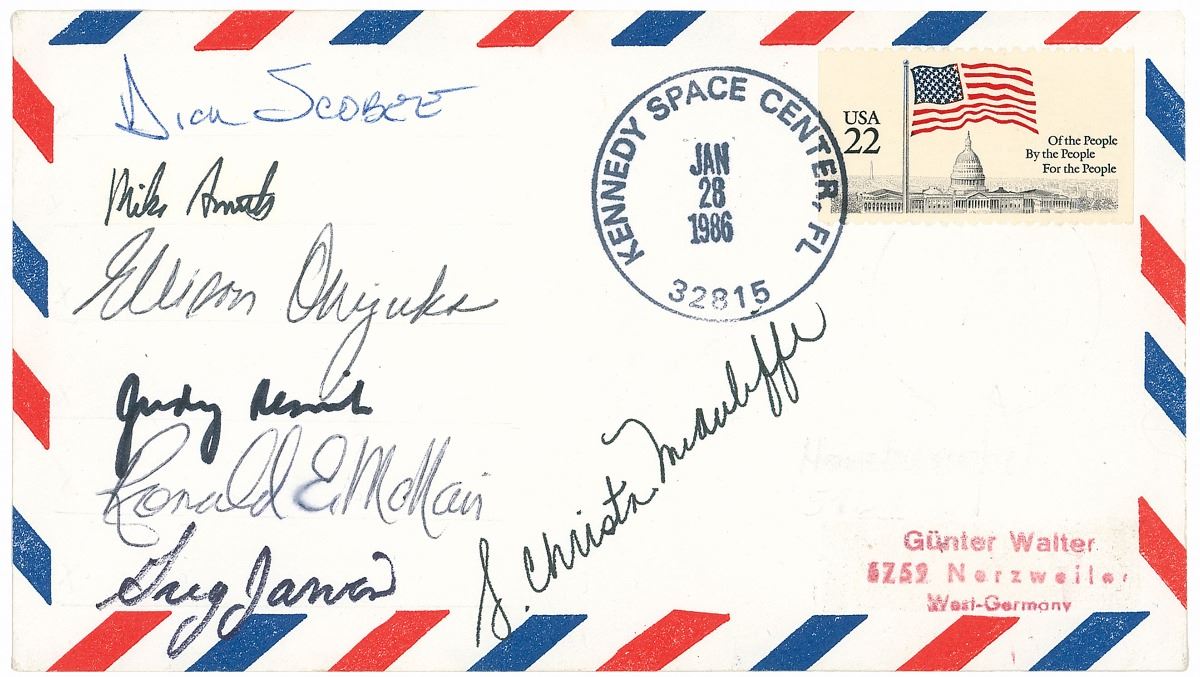 Dick Scobee
Mike Smith
Ellison Onizuka
Judy Resnik
Ronald E. McNair
Greg Jarvis
S. Christa McAuliffe
KENNEDY SPACE CENTER, FL
JAN
28
1986
32815
USA
22
Of the People
By the People
For the People
Günter Walter
6759 Nerzweiler
West-Germany